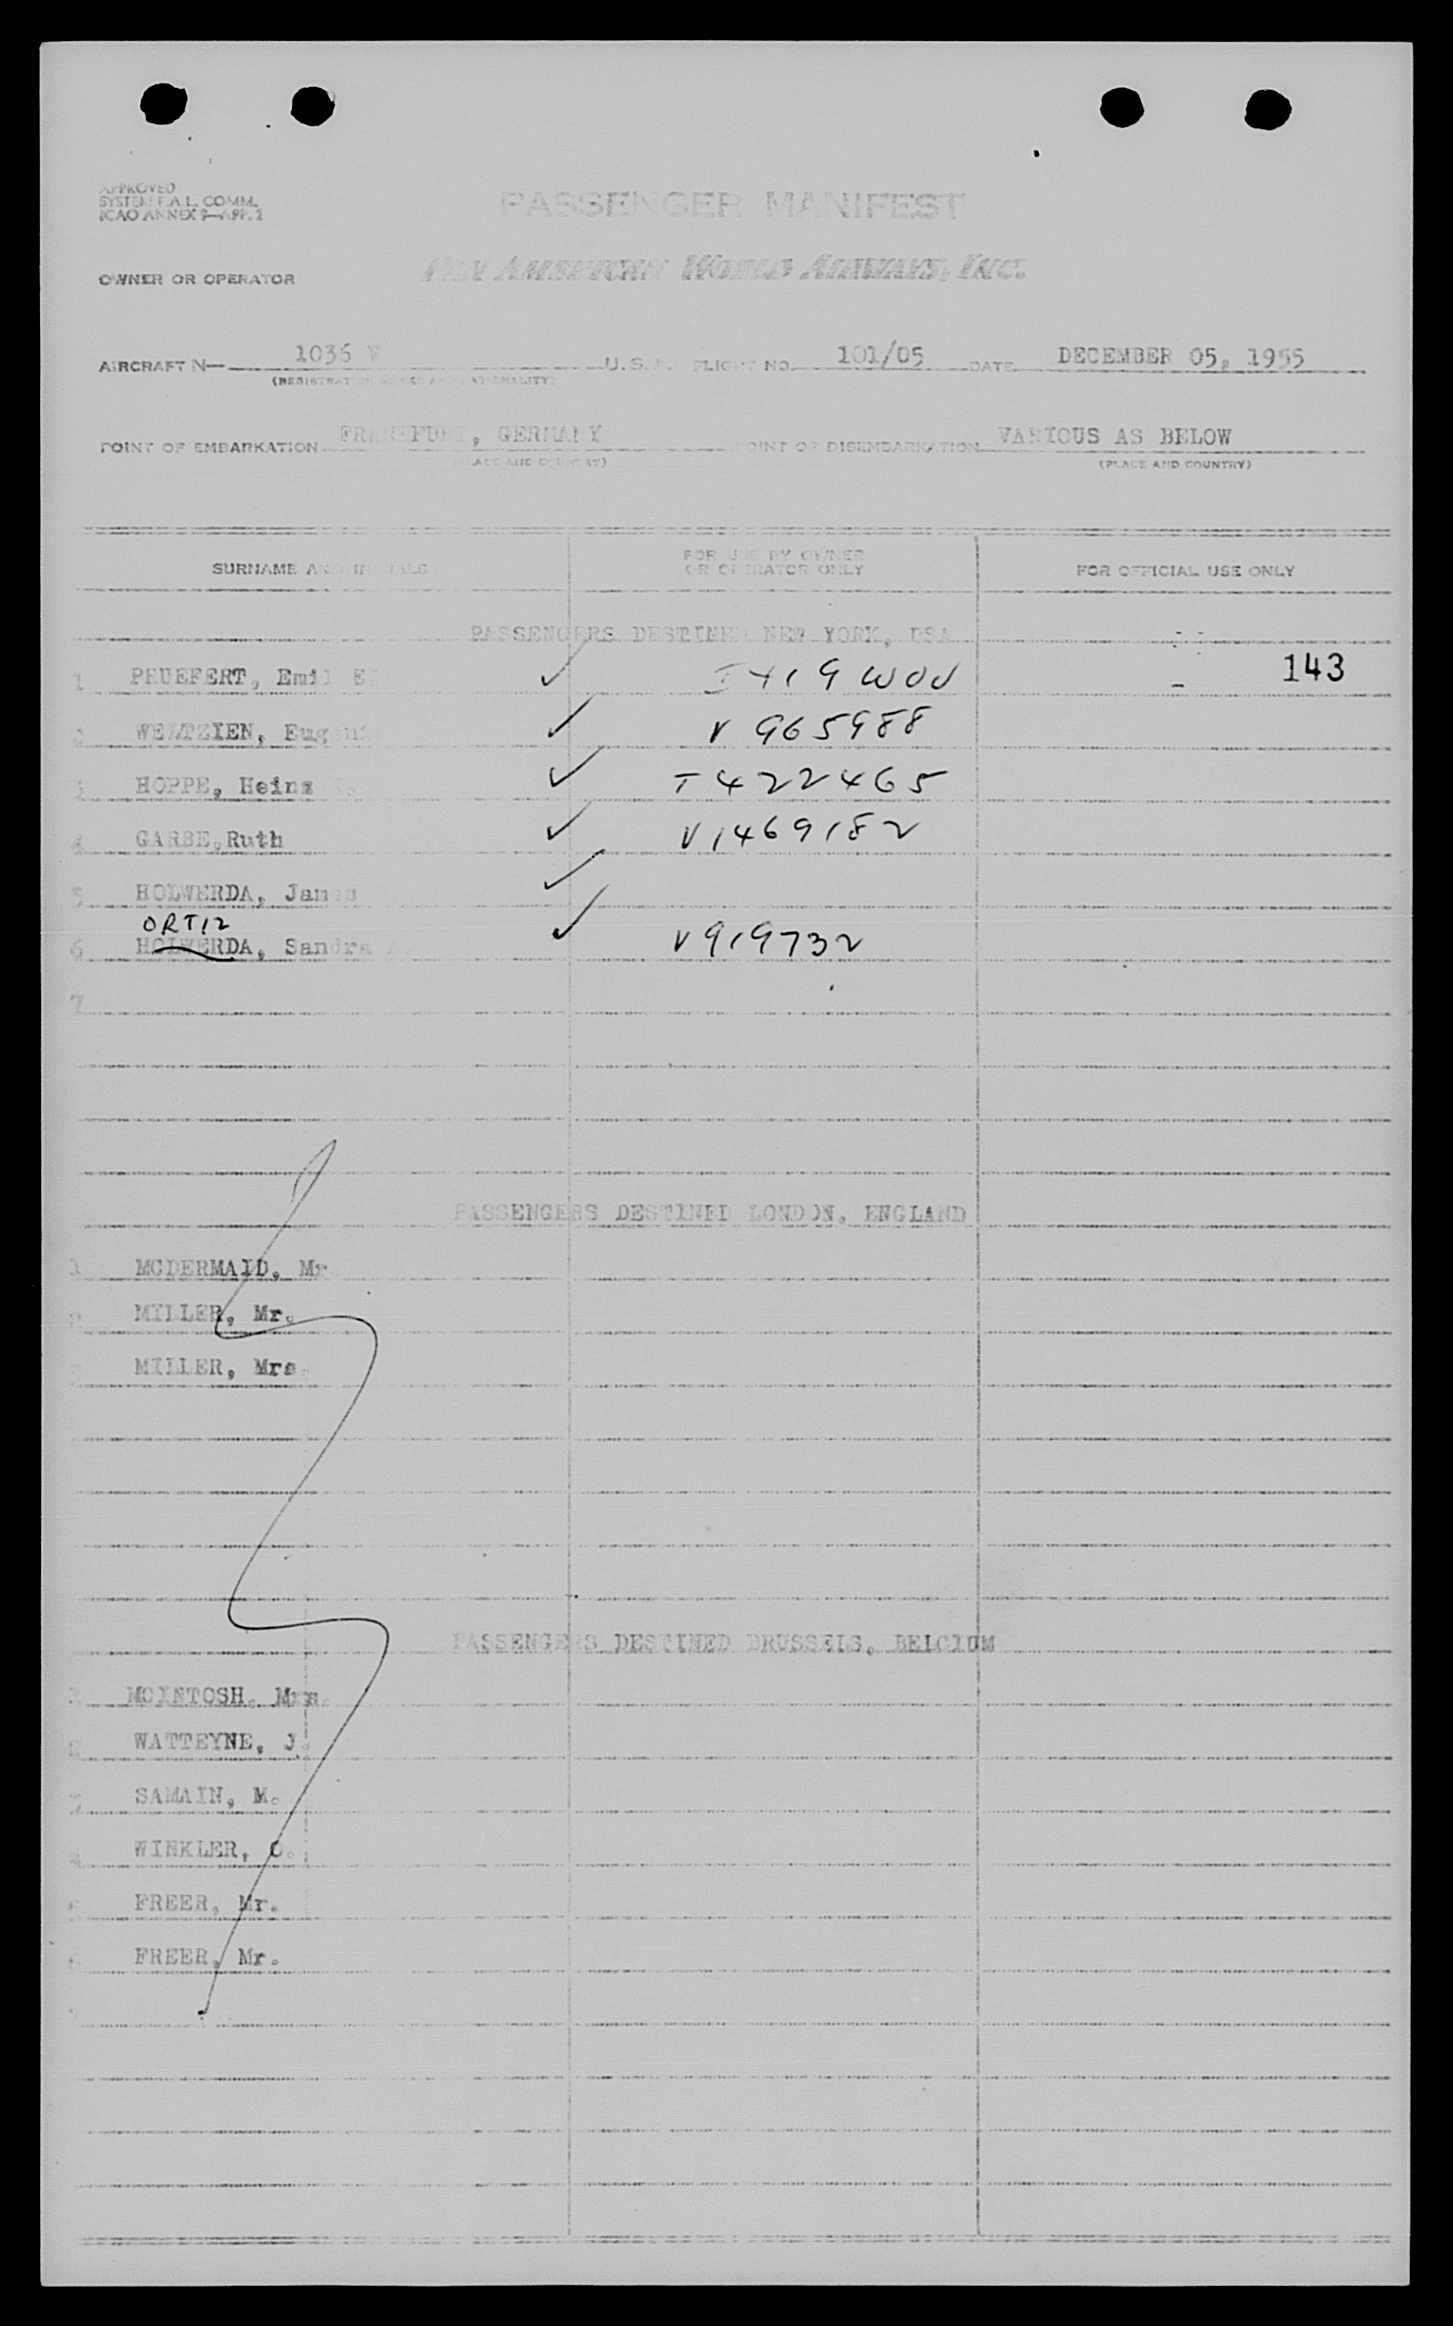 APPROVED
SYSTEM F.A.L. COMM.
ICAO ANNEX 9—APP. 2
PASSENGER MANIFEST
OWNER OR OPERATOR PAN AMERICAN WORLD AIRWAYS, INC.
AIRCRAFT N— 1036 V U.S.A. FLIGHT NO. 101/05 DATE DECEMBER 05, 1955
(REGISTRATION MARKS AND NATIONALITY)
POINT OF EMBARKATION FRANKFURT, GERMANY POINT OF DISEMBARKATION VARIOUS AS BELOW
(PLACE AND COUNTRY) (PLACE AND COUNTRY)
SURNAME AND INITIALS FOR USE BY OWNER OR OPERATOR ONLY FOR OFFICIAL USE ONLY
PASSENGERS DESTINED NEW YORK, USA
1 PEUEFERT, Emil 143
2 WELTZIEN, ✓ V 965988
3 HOPPE, Heinz ✓ T422465
4 GARBE,Ruth ✓ V1469182
5 HOLWERDA, James ✓
ORTIZ
6 HOLWERDA, Sandra ✓ V919732
7
PASSENGERS DESTINED LONDON, ENGLAND
1 MCDERMAID, Mr
2 MILLER, Mr.
MILLER, Mrs
PASSENGERS DESTINED BRUSSELS, BELGIUM
MCINTOSH, Mrs.
2 WATTEYNE, J.
3 SAMAIN, M.
4 WINKLER, O.
FREER, Mr.
FREER, Mr.